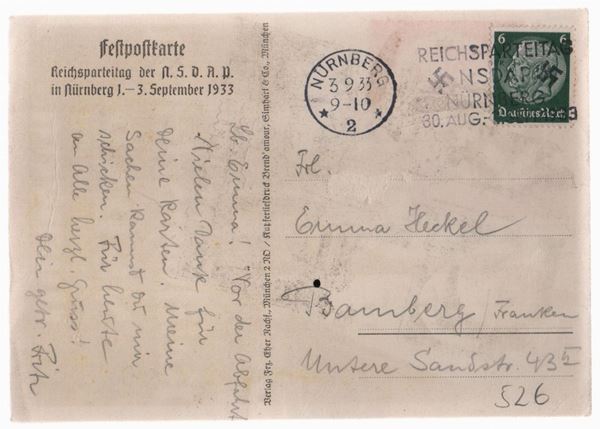 Festpostkarte
Reichsparteitag der N. S. D. A. P.
in Nürnberg 1.–3. September 1933
Lb. Emma! Vor der Abfahrt
Vielen Dank für
Deine Karten. Meine
Sachen kannst Du mir
schicken. Für heute
an Alle herzl. Grüss!
Dein getr. Fritz
Verlag Frz. Eher Nachf., München 2 NO / Kupfertiefdruck Brend'amour, Simhart & Co., München
NÜRNBERG
3.9.33
9-10
2
REICHSPARTEITAG
NSDAP
NÜRNBERG
30. AUG.-
6
6
Deutsches Reich
Frl.
Emma Heckel
Bamberg / Franken
Untere Sandstr. 43 II
526